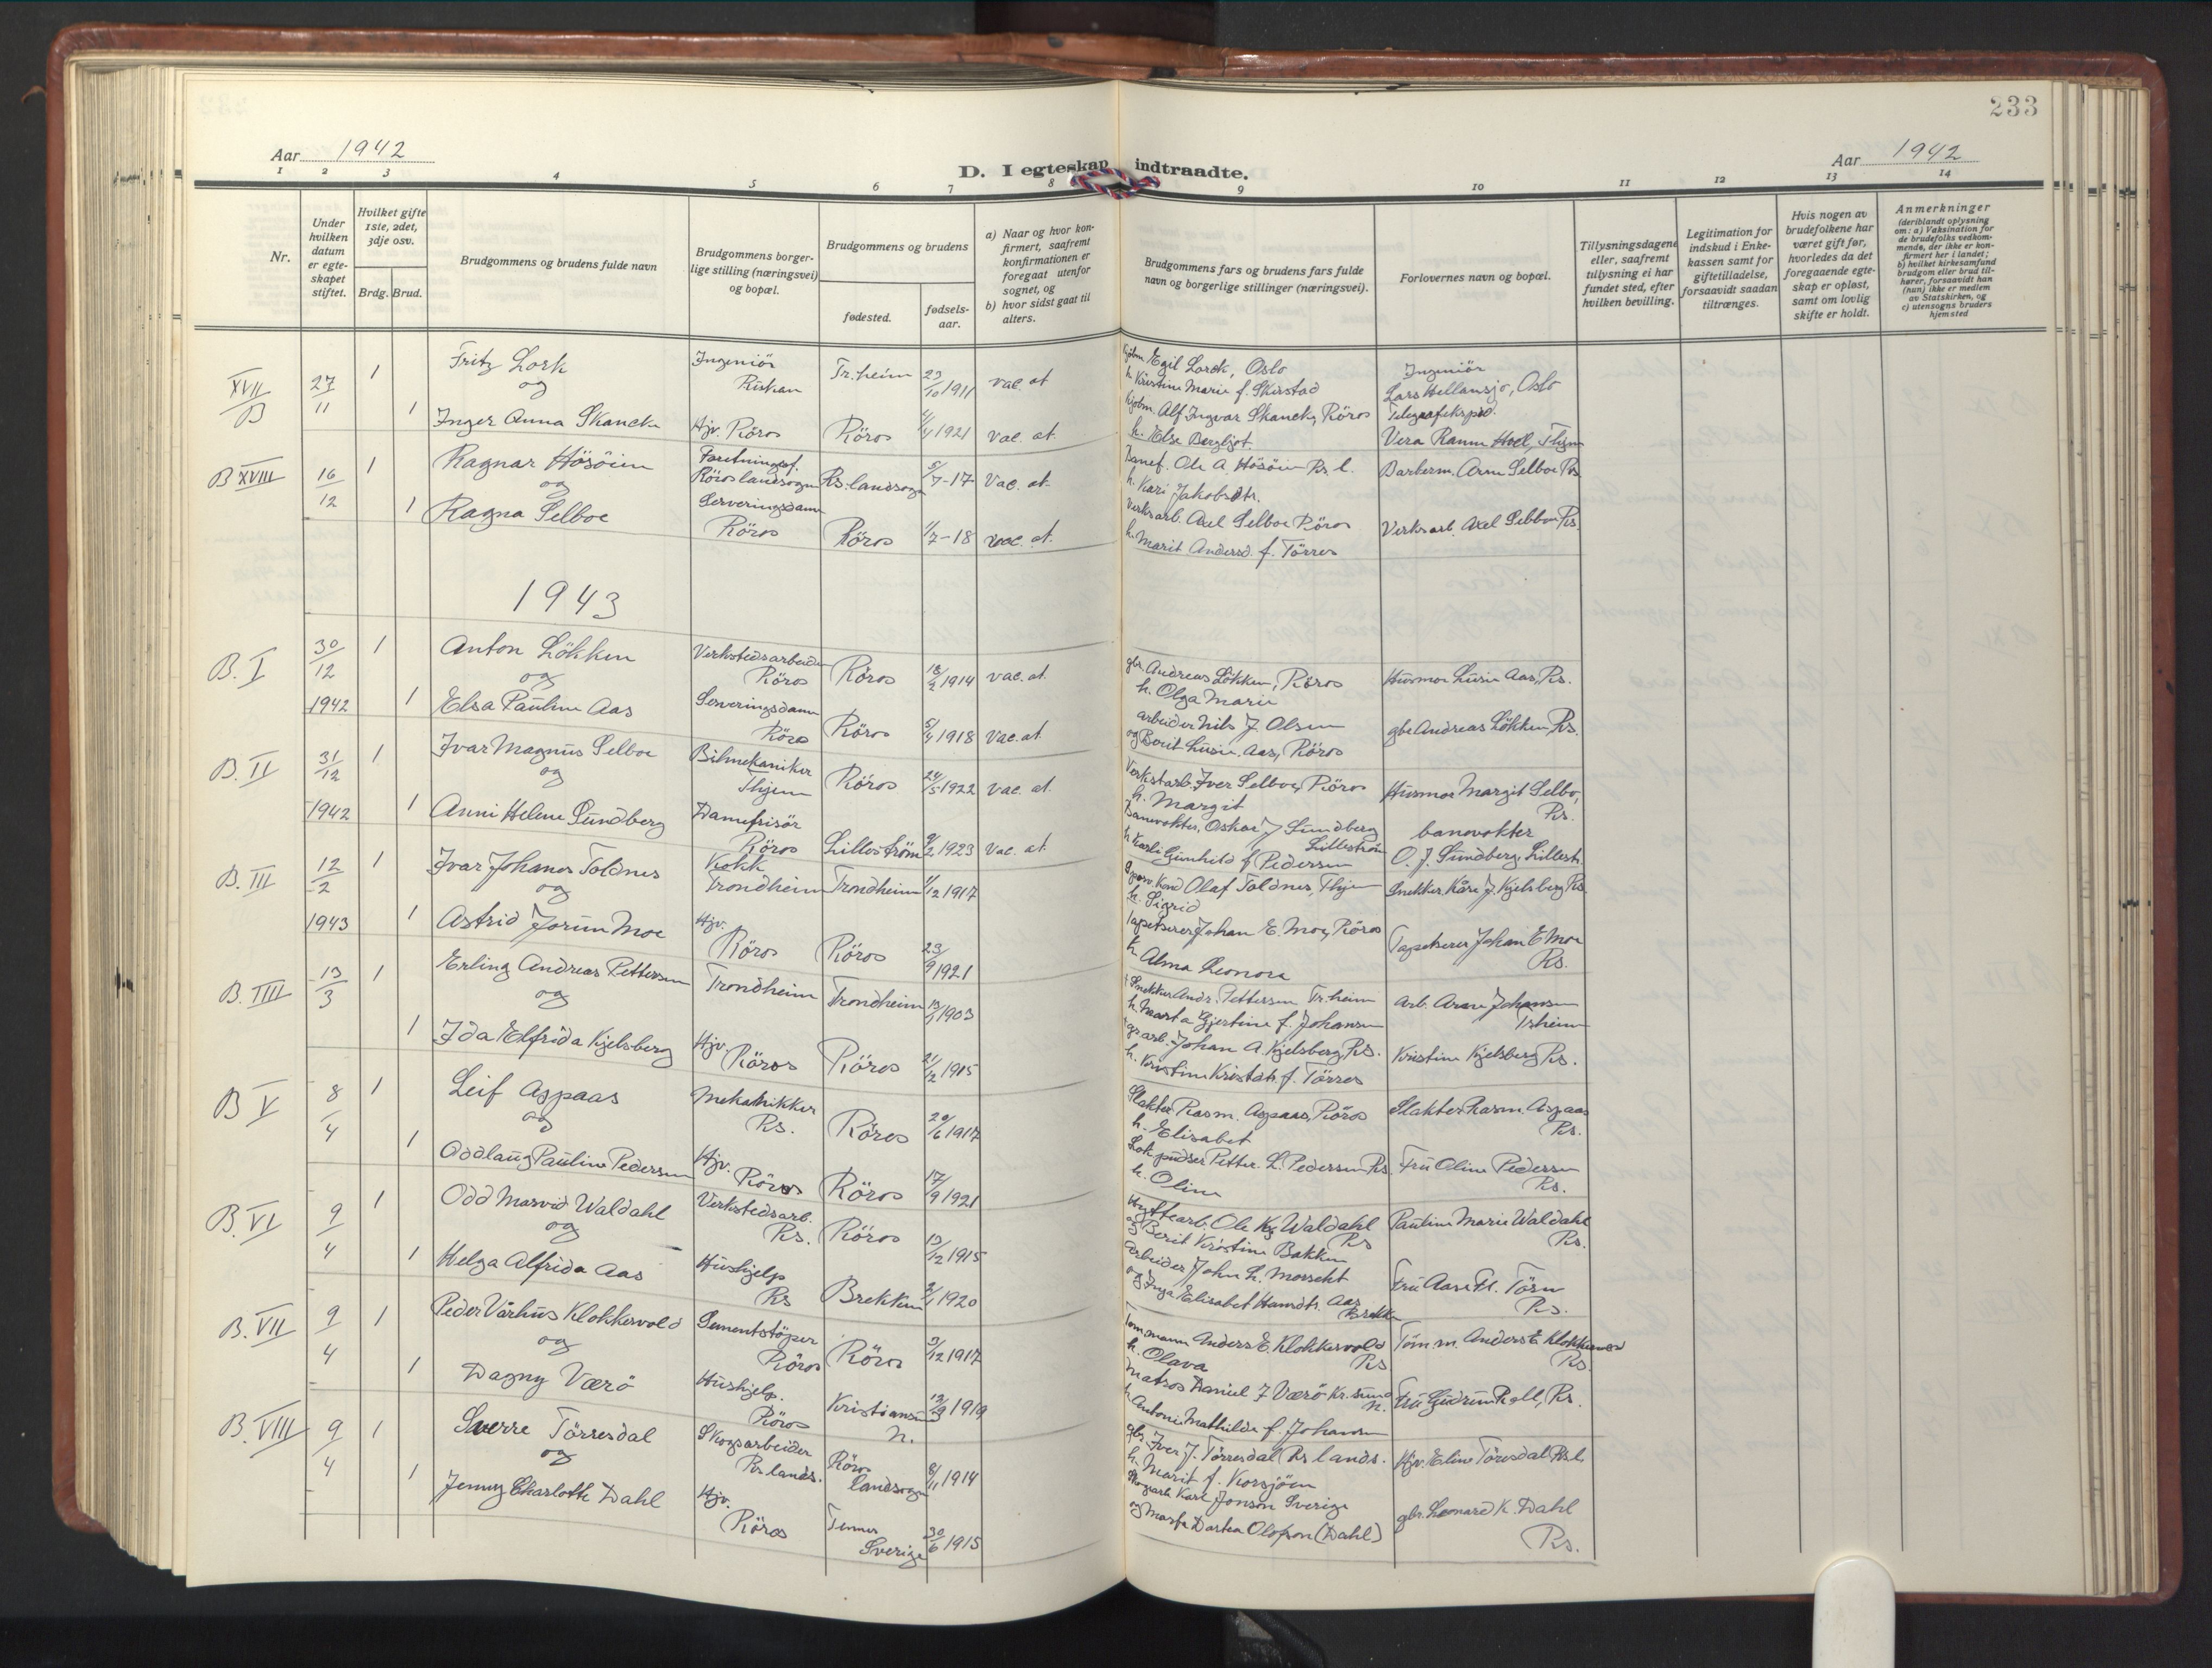 233
Aar 1942
D. I egteskap indtraadte.
Aar 1942
1 2 3 4 5 6 7 8 9 10 11 12 13 14
Nr.
Under hvilken datum er egte-skapet stiftet.
Hvilket gifte 1ste, 2det, 3dje osv.
Brdg. Brud.
Brudgommens og brudens fulde navn
Brudgommens borger-lige stilling (næringsvei) og bopæl.
Brudgommens og brudens
fødested.
fødsels-aar.
a) Naar og hvor kon-firmert, saafremt konfirmationen er foregaat utenfor sognet, og
b) hvor sidst gaat til alters.
Brudgommens fars og brudens fars fulde navn og borgerlige stillinger (næringsvei).
Forlovernes navn og bopæl.
Tillysningsdagene eller, saafremt tillysning ei har fundet sted, efter hvilken bevilling.
Legitimation for indskud i Enke-kassen samt for giftetilladelse, forsaavidt saadan tiltrænges.
Hvis nogen av brudefolkene har været gift før, hvorledes da det foregaaende egte-skap er opløst, samt om lovlig skifte er holdt.
Anmerkninger
(deriblandt oplysning om: a) Vaksination for de brudefolks vedkom-mende, der ikke er kon-firmert her i landet; b) hvilket kirkesamfund brudgom eller brud til-hører, forsaavidt han (hun) ikke er medlem av Statskirken, og c) utensogns bruders hjemsted
XVII B 27/11 1 Fritz Lorck Ingeniör Rukan Tr.heim 23/10 1911 vac. at Kjøbm. Egil Lorck, Oslo Ingeniör
og h. Kristine Marie f. Skirstad Lars Hellansjo, Oslo
1 Inger Anna Skancke Hjv. Röros Röros 4/4 1921 vac. at. Kjobm. Alf Ingvar Skancke, Röros Telegrafekspd.
h. Else Bergljot. Vera Ranne Hoel, Thjem
B XVIII 16/12 1 Ragnar Hösöien Forretningsf. Röros landsogn Rs. landsogn 5/7-17 Vac. at. Banef. Ole A. Hösöien Rs. l. Barberm. Arne Selboe Rs.
og h. Kari Jakobsdtr.
1 Ragna Selboe Serveringsdame Röros Röros 1/7-18 vac. at. Verksarb. Axel Selboe Röros Verksarb. Axel Selboe Rs.
h. Marit Andersd. f. Törres
1943
B. I 30/12 1942 1 Anton Lökken Verkstedsarbeider Röros Röros 18/2 1914 vac. at. gbr. Andreas Lökken, Röros Husmor Lusie Aas, Rs.
og h. Olga Marie
1 Elsa Pauline Aas Serveringsdame Röros Röros 5/4 1918 Vac. at arbeider Nils J Olsen gbr Andreas Lökken, Rs.
og Berit Lusie Aas, Röros
B. II 31/12 1942 1 Ivar Magnus Selboe Bilmekaniker Thjem Röros 24/5 1922 vac. at. Verkstarb. Iver Selboe, Röros Husmor Margit Selbo, Rs.
og h. Margit
1 Anni Helene Sundberg Damefrisör Röros Lilleström 9/2 1923 vac. at Banevokter, Oskar J Sundberg Lilleström banevokter
h. Karli Gunhild f Pedersen O. J. Sundberg, Lillestr.
B. III 12/2 1943 1 Ivar Johanes Toldnes Kokk Trondheim Trondheim 1/12 1917 Sporv. kond Olaf Toldnes, Thjem Snekker Kåre J. Kjelsberg Rs.
og h. Sigrid
1 Astrid Jorun Moe Hjv. Röros Röros 23/9 1921 Tapetserer Johan E. Moe, Röros Tapetserer Johan E Moe Rs.
h. Alma Leonora
B. IIII 13/3 1 Erling Andreas Pettersen Trondheim Trondheim 1903 Snekker Andr. Pettersen Tr.heim Arb. Arne Johansen Trheim
og h. Marta Gjertine f. Johansen
1 Ida Elfrida Kjelsberg Hjv. Röros Röros 21/12 1915 arb. Johan A. Kjelsberg, Rs. Kristine Kjelsberg Rs.
h. Kristine Kristdtr. f. Törres
B V 8/4 1 Leif Aspaas Mekanikker Rs. Röros 20/6 1917 Slakter Rasm. Aspaas, Röros Slakter Rasm. Aspaas Rs.
og h. Elisabet
1 Oddlaug Pauline Pedersen Hjv. Röros Röros 17/9 1921 Lok. pudser Petter L. Pedersen Rs. Fru Oline Pedersen Rs.
h. Oline
B. VI 9/4 1 Odd Marvid Waldahl Verkstedsarb. Rs. Röros 13/12 1915 Hyttearb. Ole Kg Waldahl Rs Pauline Marie Waldahl Rs.
og og Berit Kristine Bakken
1 Helga Alfrida Aas Hushjelp Rs Brekken 2/1 1920 arbeider John L. Morseht Fru Aase Fl. Törn Rs.
og Inga Elisabet Hansdtr. Aas Brekken
B. VII 9/4 1 Peder Vårhus Klokkervold Sementstöper Röros Röros 3/12 1917 Tommann Anders E. Klokkervold Rs Töm. m. Anders E. Klokkervold Rs.
og h. Olava
1 Dagny Værö Hushjelp. Röros Kristiansund n. 13/9 1919 Matros Daniel J Værö Kr.sund n. Fru Gudrun Roll, Rs.
h. Antonie Mathilde f. Johansen
B. VIII 9/4 1 Sverre Törresdal Skogsarbeider Rs lands. Röros landsogn 8/11 1914 gbr. Iver J. Törresdal Rs lands. Hjv. Eline Töresdal Rs l.
og h. Marit f. Korsjöen
1 Jenny Charlotte Dahl Hjv. Röros Tennes Sverige 30/6 1915 Skogsarb Karl Jonson Sverige gbr. Leonard K. Dahl Rs.
og Marta Dortea Olofson (Dahl)